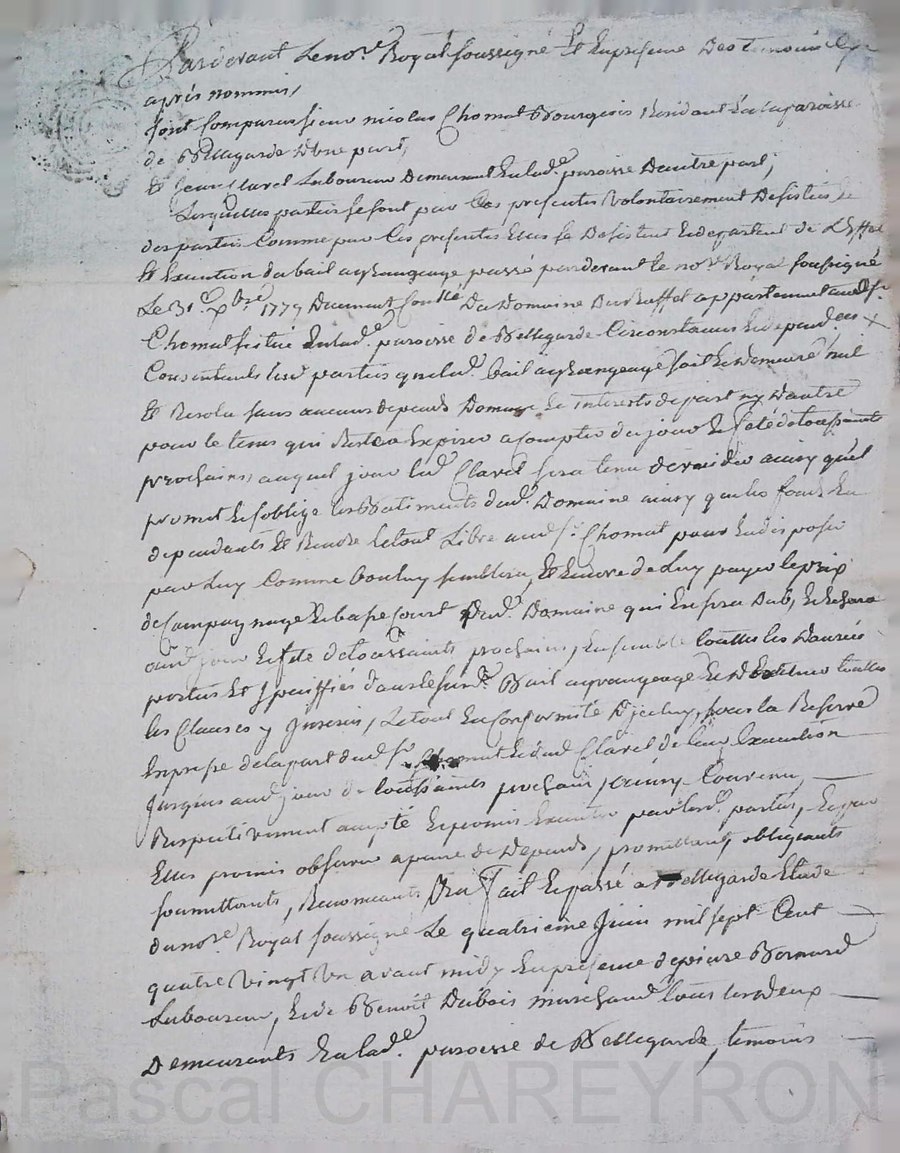 Pardevant Le no.re Royal soussigné Et En presence Des temoins Cy
après nommés,
Sont Comparus sieur nicolas Chomat Bourgeois Residant En la paroisse
de Bellegarde D'une part,
Et Jean Clavel Laboureur Demeurant En lad.e paroisse D'autre part,
Lesquelles parties se sont par Ces presentes volontairement Desisties Et
departies Comme par Ces presentes Elles se Desistent Et departent de L'Effet
Et Execution du bail a grangeage passé pardevant le no.re Royal soussigné
Le 31.e Xbre 1779 Deument Conllé Du Domaine Du Buffet appartenant aud. s.r
Chomat situé En lad.e paroisse de Bellegarde Circonstances Et depend.ces
Consentents lesd. parties que led. bail a grangeage soit Et Demeure nul
Et Resolu sans aucuns depends Domage Et interests de part ny D'autre
pour le tems qui Reste a Expirer a Compter du jour Et fete de toussaints
prochains, auquel jour led. Clavel sera tenu de vuider ainsy qu'il
promet Et s'oblige les Batiments dud. Domaine ainsy que les fonds En
dependants Et Rendre le tout Libre aud. s.r Chomat pour En disposer
par Luy Comme bon luy semblera, Et Encore de Luy payer le prix
de Campagnage Et basse Court Dud. Domaine qui En sera Dub, Et Echera
aud. jour Et fete de toussaints prochains, Ensemble touttes les Danrées
portés Et Speciffiés dans le susd. Bail a grangeage Et D'Executer touttes
les Clauses y Inserés, Le tout En Conformité D'jceluy, sous la Reserve
Expresse de la part dud. s.r Chomat Et dud. Clavel de leur Execution
Jusqües aud. jour de toussaints prochain, ainsy Convenu,
Respectivement accepté Et promis Executer par lesd. parties, Et par
Elles promis observer a peine de Depends, promettants, obligeants
soumettants, Renonceants, Fait Et passé a Bellegarde Etude
du no.re Royal soussigné Le quatrieme Juin mil sept Cent
quatre vingt Un avant midy En presence de pierre Bernard
Laboureur, Et de Benoit Dubois marchand tous les deux
Demeurants En lad.e paroisse de Bellegarde, temoins
Pascal CHAREYRON